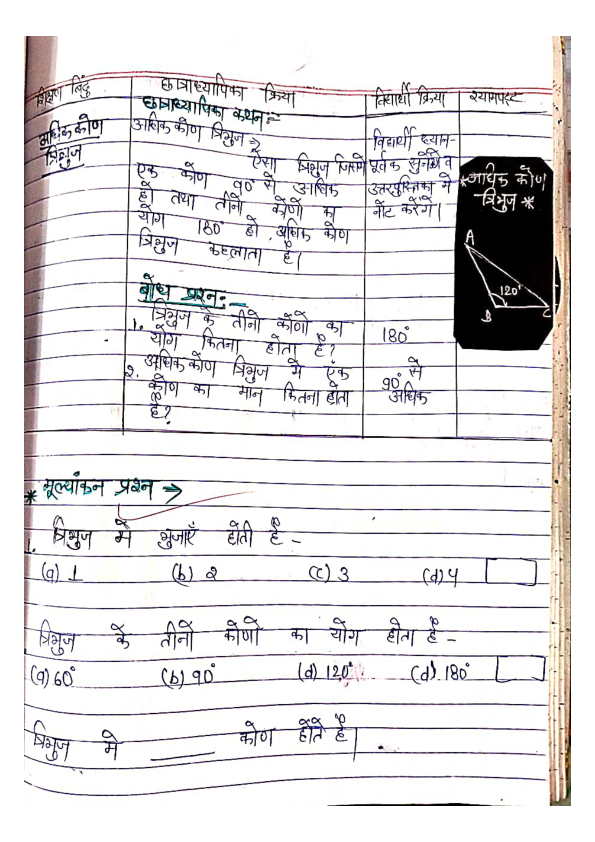 शिक्षण बिंदु
छात्राध्यापिका क्रिया
विद्यार्थी क्रिया
श्यामपट्ट
अधिक कोण
त्रिभुज
छात्राध्यापिका कथन:-
अधिक कोण त्रिभुज :→
ऐसा त्रिभुज जिसमे
एक कोण 90° से अधिक
हो तथा तीनो कोणो का
योग 180° हो अधिक कोण
त्रिभुज कहलाता है।
विद्यार्थी ध्यान-
पूर्वक सुनेंगे व
उत्तरपुस्तिका मे
नोट करेंगे।
*अधिक कोण
त्रिभुज *
A
120°
B
C
बोध प्रश्न:-
1. त्रिभुज के तीनो कोणो का
योग कितना होता है?
180°
2. अधिक कोण त्रिभुज मे एक
कोण का मान कितना होता
है?
90° से
अधिक
* मूल्यांकन प्रश्न →
1. त्रिभुज में भुजाएँ होती है -
(a) 1 (b) 2 (c) 3 (d) 4
त्रिभुज के तीनो कोणो का योग होता है -
(a) 60° (b) 90° (d) 120° (d) 180°
त्रिभुज मे ____ कोण होते है।